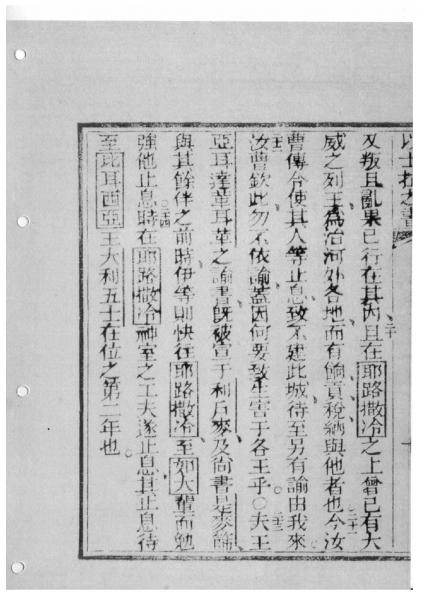 以士拉之書
又叛且亂果已行在其內且在耶路撒冷之上曾已有大
二十
威之列王爲治河外各地而有餉貢稅納與他者也今汝
二十一
曹傳令使其人等止息致不建此城待至另有諭由我來
二十二
汝曹欽此勿不依諭蓋因何要致生害于各王乎○夫王
二十三
亞耳達革耳革之諭書既被宣于利戶麥及尚書是麥篩
與其餘伴之前時伊等則快往耶路撒冷至如大輩而勉
二十四
強他止息時在耶路撒冷神室之工夫遂止息其止息待
至比耳西亞王大利五士在位之第二年也